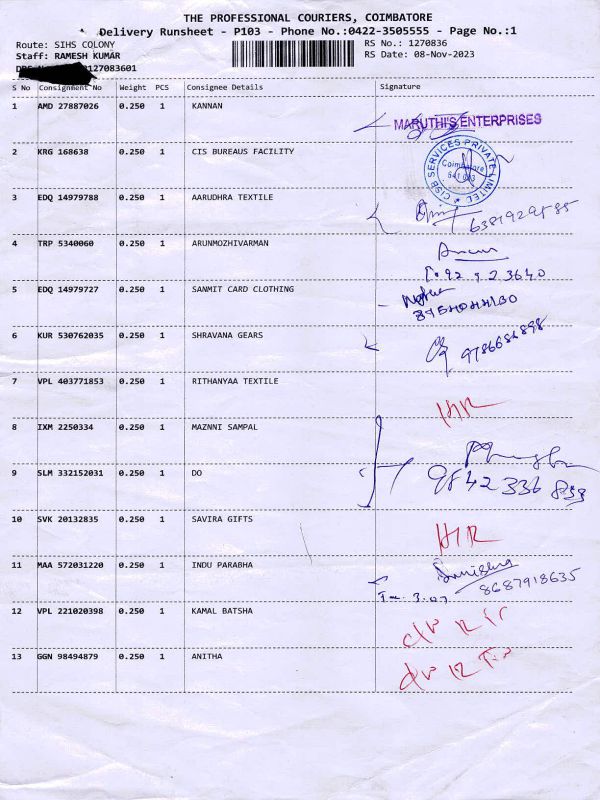 THE PROFESSIONAL COURIERS, COIMBATORE
Delivery Runsheet - P103 - Phone No.:0422-3505555 - Page No.:1
Route: SIHS COLONY
RS No.: 1270836
Staff: RAMESH KUMAR
RS Date: 08-Nov-2023
127083601
S No Consignment No Weight PCS Consignee Details Signature
1 AMD 27887026 0.250 1 KANNAN
MARUTHI'S ENTERPRISES
2 KRG 168638 0.250 1 CIS BUREAUS FACILITY
CISB SERVICES PRIVATE LIMITED
Coimbatore
3 EDQ 14979788 0.250 1 AARUDHRA TEXTILE
6381929585
4 TRP 5340060 0.250 1 ARUNMOZHIVARMAN
5 EDQ 14979727 0.250 1 SANMIT CARD CLOTHING
6 KUR 530762035 0.250 1 SHRAVANA GEARS
9786686898
7 VPL 403771853 0.250 1 RITHANYAA TEXTILE
8 IXM 2250334 0.250 1 MAZNNI SAMPAL
9 SLM 332152031 0.250 1 DO
9842336 833
10 SVK 20132835 0.250 1 SAVIRA GIFTS
11 MAA 572031220 0.250 1 INDU PARABHA
8687918635
12 VPL 221020398 0.250 1 KAMAL BATSHA
13 GGN 98494879 0.250 1 ANITHA